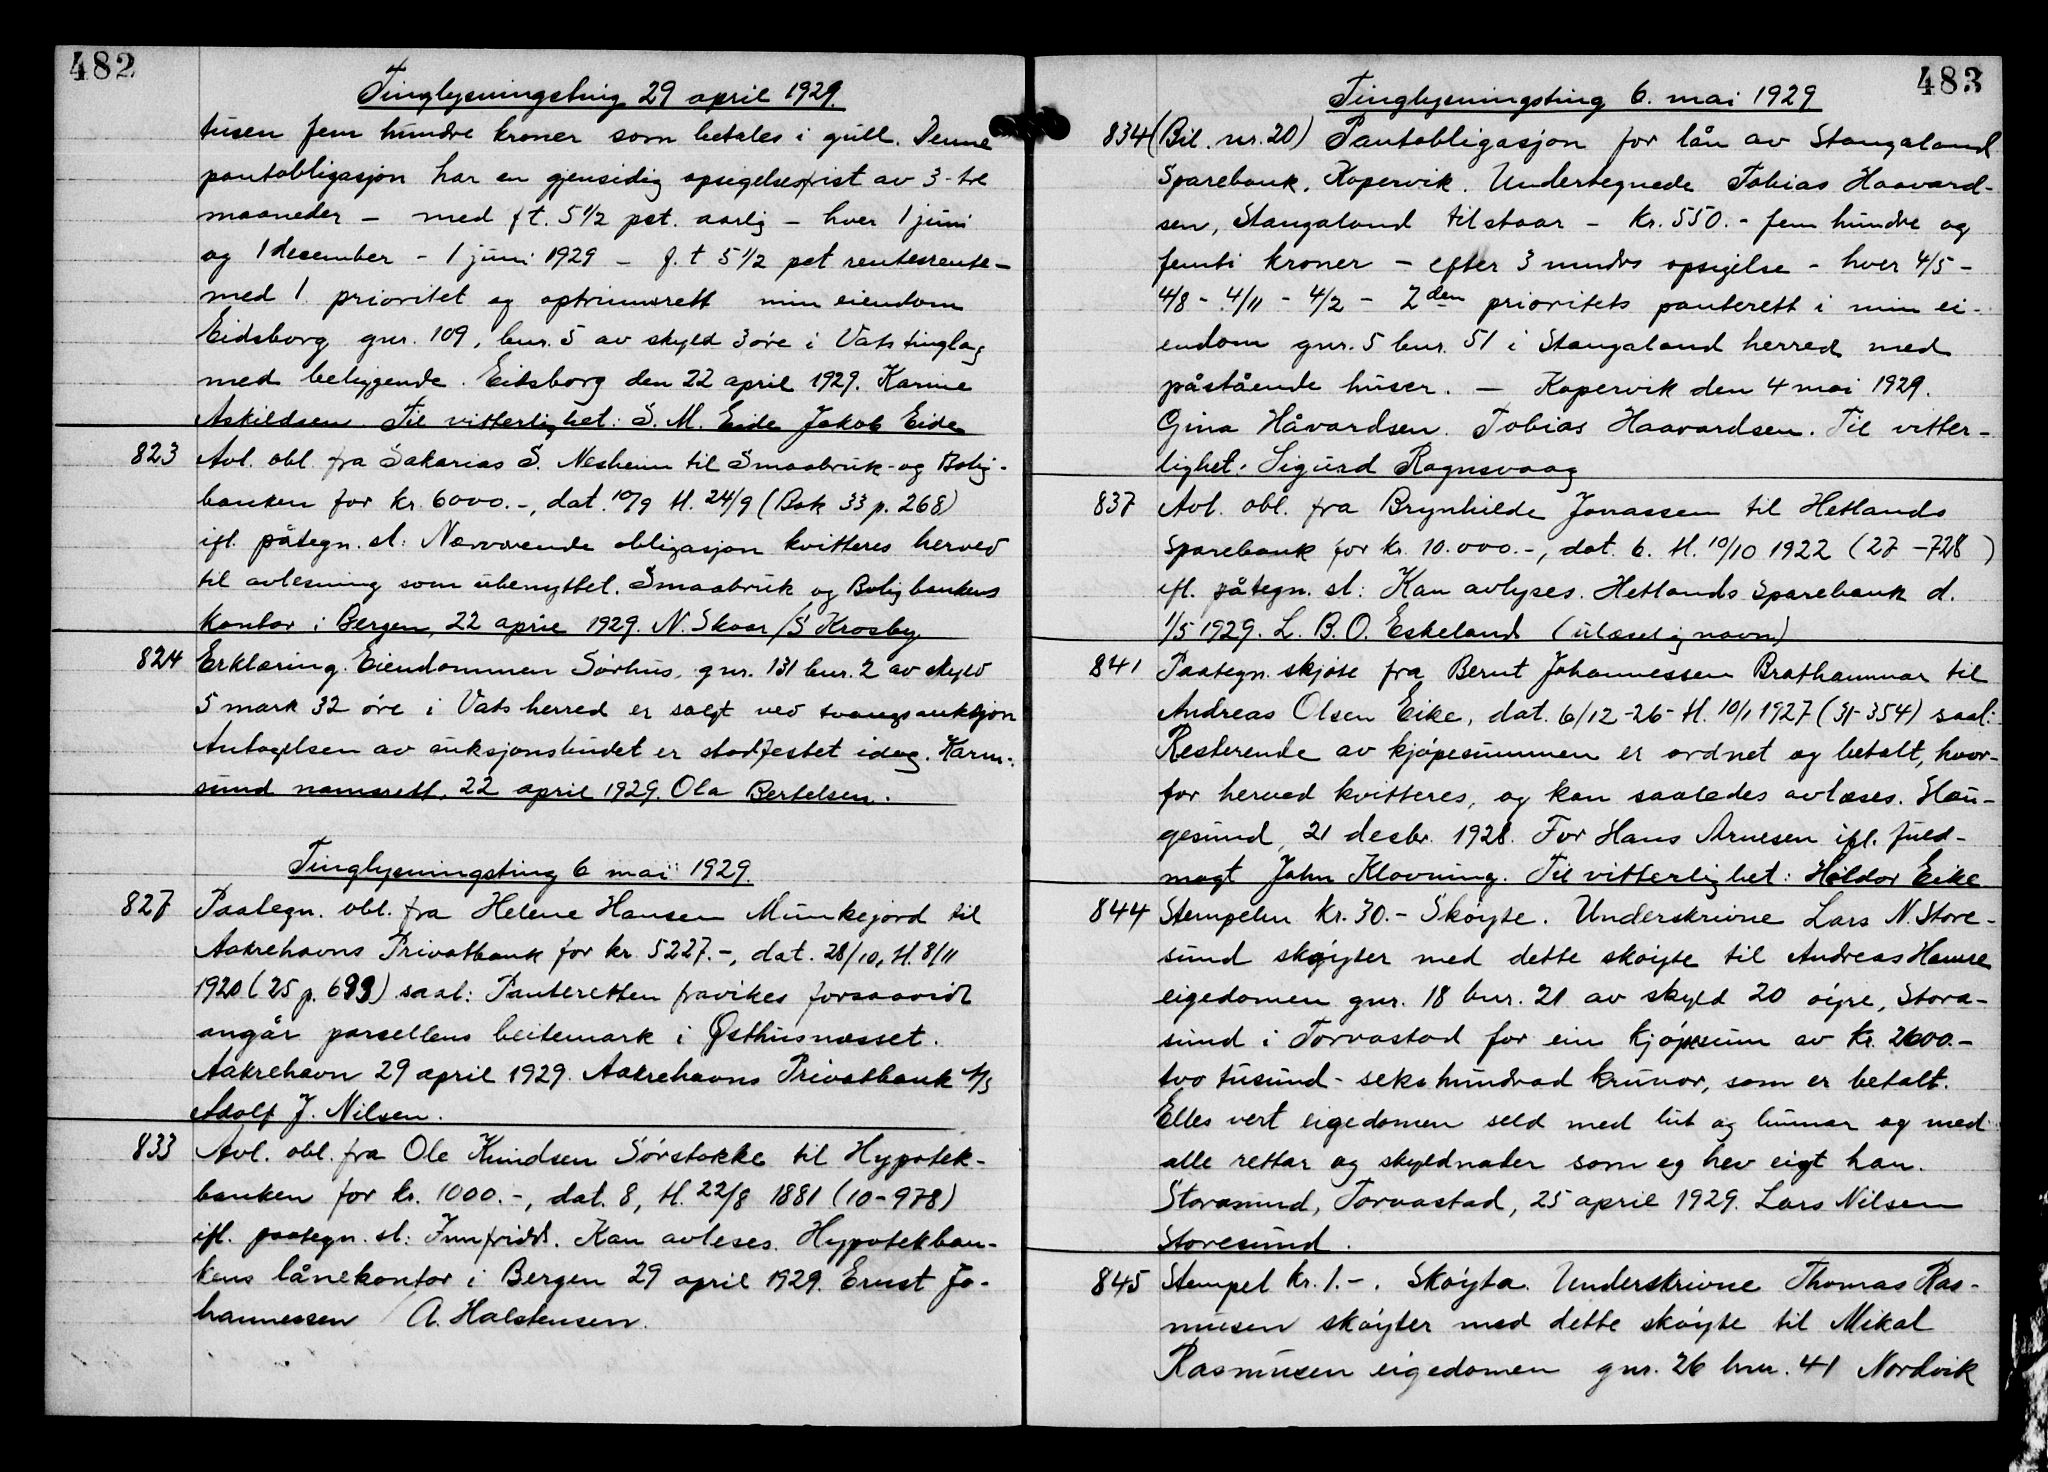 482
Tinglysningsting 29 april 1929.
tusen fem hundre kroner som betales i gull. Denne
pantobligasjon har en gjensidig opsigelsesfrist av 3 - tre
maaneder - med f t. 5 1/2 pct. aarlig - hver 1 juni
og 1 desember - 1 juni 1929 - f. t 5 1/2 pct rentesrente -
med 1 prioritet og optrinnsrett min eiendom
Eidsborg gnr. 109, bnr. 5 av skyld 3 øre i Vats tinglag
med bebyggende. Eidsborg den 22 april 1929. Karine
Askildsen Til vitterlighet: S. M. Eide Jakob Eide
823 Avl. obl. fra Sakarias S. Nesheim til Smaabruk- og Bolig-
banken for kr. 6000.-, dat. 10/9 tl. 24/9 (Bok 33 p. 268)
ifl. påtegn. sl: Nærværende obligasjon kvitteres herved
til avlesning som ubenyttet. Smaabruk og Boligbankens
kontor i Bergen, 22 april 1929. N. Skaar / S Krosby
824 Erklæring. Eiendommen Sørhus, gnr. 131 bnr. 2 av skyld
5 mark 32 øre i Vats herred er solgt ved tvangsauksjon
Antagelsen av auksjonsbudet er stadfestet idag. Karm-
sund namsrett, 22 april 1929. Ola Bertelsen.
Tinglysningsting 6 mai 1929.
827 Paategn. obl. fra Helene Hansen Munkejord til
Aakrehavns Privatbank for kr. 5227.-, dat. 28/10, tl. 8/11
1920 (25 p. 693) saal: Panteretten fravikes forsaavidt
angår parsellens beitemark i Østhusnæsset.
Aakrehavn 29 april 1929. Aakrehavns Privatbank A/S
Adolf J. Nilsen.
833 Avl. obl. fra Ole Knudsen Sørstokke til Hypotek-
banken for kr. 1000.-, dat. 8, tl. 22/8 1881 (10-978)
ifl. paategn. sl: Innfridd. Kan avleses. Hypotekban-
kens lånekontor i Bergen 29 april 1929. Ernst Jo-
hannessen / A. Halstensen.
483
Tinglysningsting 6. mai 1929
834 (Bil. nr. 20) Pantobligasjon for lån av Stangaland
Sparebank, Kopervik. Undertegnede Tobias Haavard-
sen, Stangaland tilstaar - kr. 550.- fem hundre og
femti kroner - efter 3 mndrs opsigelse - hver 4/5 -
4/8 - 4/11 - 4/2 - 2den prioritets panterett i min ei-
endom gnr. 5 bnr. 51 i Stangaland herred med
påstående huser. - Kopervik den 4 mai 1929.
Gina Håvardsen. Tobias Haavardsen. Til vitter-
lighet: Sigurd Ragnsvaag
837 Avl. obl. fra Brynhilde Jonassen til Hetlands
Sparebank for kr. 10.000.-, dat. 6. tl. 10/10 1922 (27 - 728)
ifl. påtegn. sl: Kan avlyses. Hetlands Sparebank d.
1/5 1929. L. B. O. Eskeland (ulæselig navn)
841 Paategn. skjøte fra Bernt Johannessen Brathammar til
Andreas Olsen Eike, dat. 6/12 - 26 - tl. 10/1 1927 (31-354) saal:
Resterende av kjøpesummen er ordnet og betalt, hvor-
for herved kvitteres, og kan saaledes avlæses. Hau-
gesund, 21 desbr. 1928. For Hans Arnesen ifl. fuld-
magt John Klovning. Til vitterlighet: Haldor Eike
844 Stempelm kr. 30.- Skøyte. Underskrivne Lars N. Store-
sund skøyter med dette skøyte til Andreas Hamre
eigedomen gnr. 18 bnr. 21 av skyld 20 øyre, Stora-
sund i Torvastad for ein kjøpesum av kr. 2600.-
tvo tusund - seks hundrad krunor, som er betalt.
Elles vert eigedomen seld med lut og lunnar og med
alle rettar og skyldnader som eg hev eigt han.
Storasund, Torvastad, 25 april 1929. Lars Nilsen
Storesund.
845 Stempel kr. 1.-. Skøyta. Underskrivne Thomas Ras-
mussen skøyter med dette skøyte til Mikal
Rasmussen eigedomen gnr. 26 bnr. 41 Nordvik